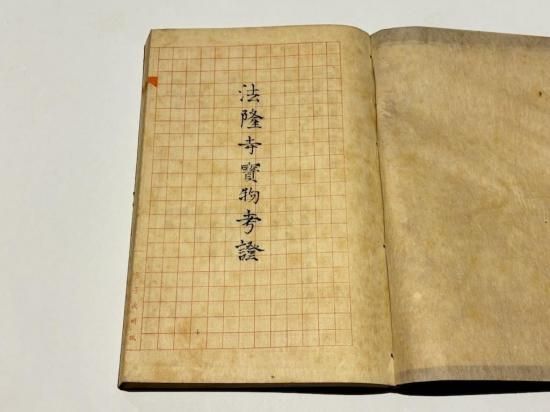 法隆寺寶物考證